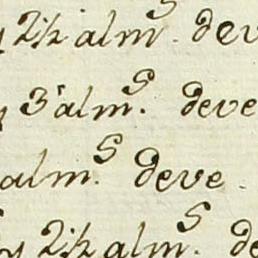 2½ alm.s dev
3 alm.s deve
alm.s deve.
y 2½ alm.s de